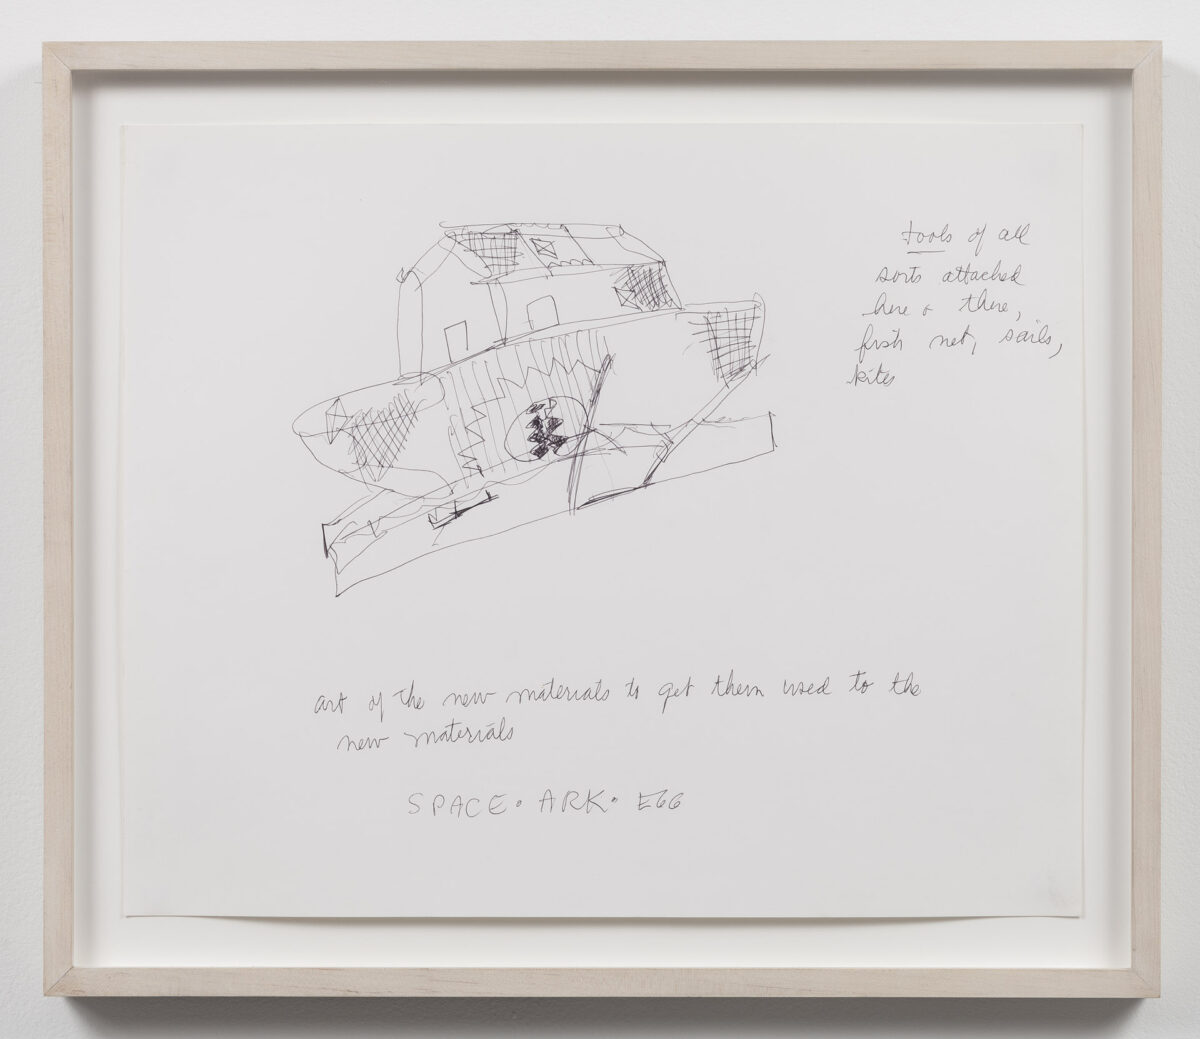 tools of all
sorts attached
here & there,
fish net, sails,
kites
art of the new materials to get them used to the
new materials
SPACE • ARK • EGG